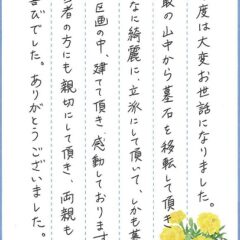 度は大変お世話になりました。
取の山中から墓石を移転して頂き
なに綺麗に、立派にして頂いて、しかも墓
区画の中、建てて頂き感動しております
当者の方にも親切にして頂き、両親も
喜びでした。ありがとうございました。